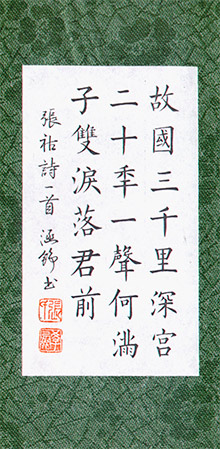 故國三千里深宮
二十秊一聲何滿
子雙淚落君前
張祜詩一首